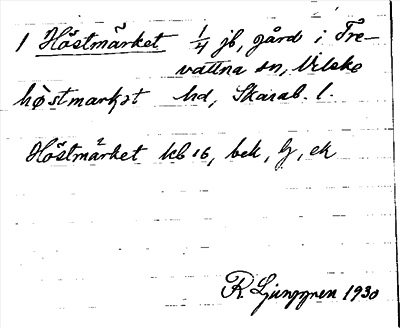 1 Höstmärket 1/4 jb, gård i Trä-
vattna sn, Vilske
höstmarkət hd, Skarab. l.
Höstmärket kb 16, bek, lj, ek
R Ljunggren 1930